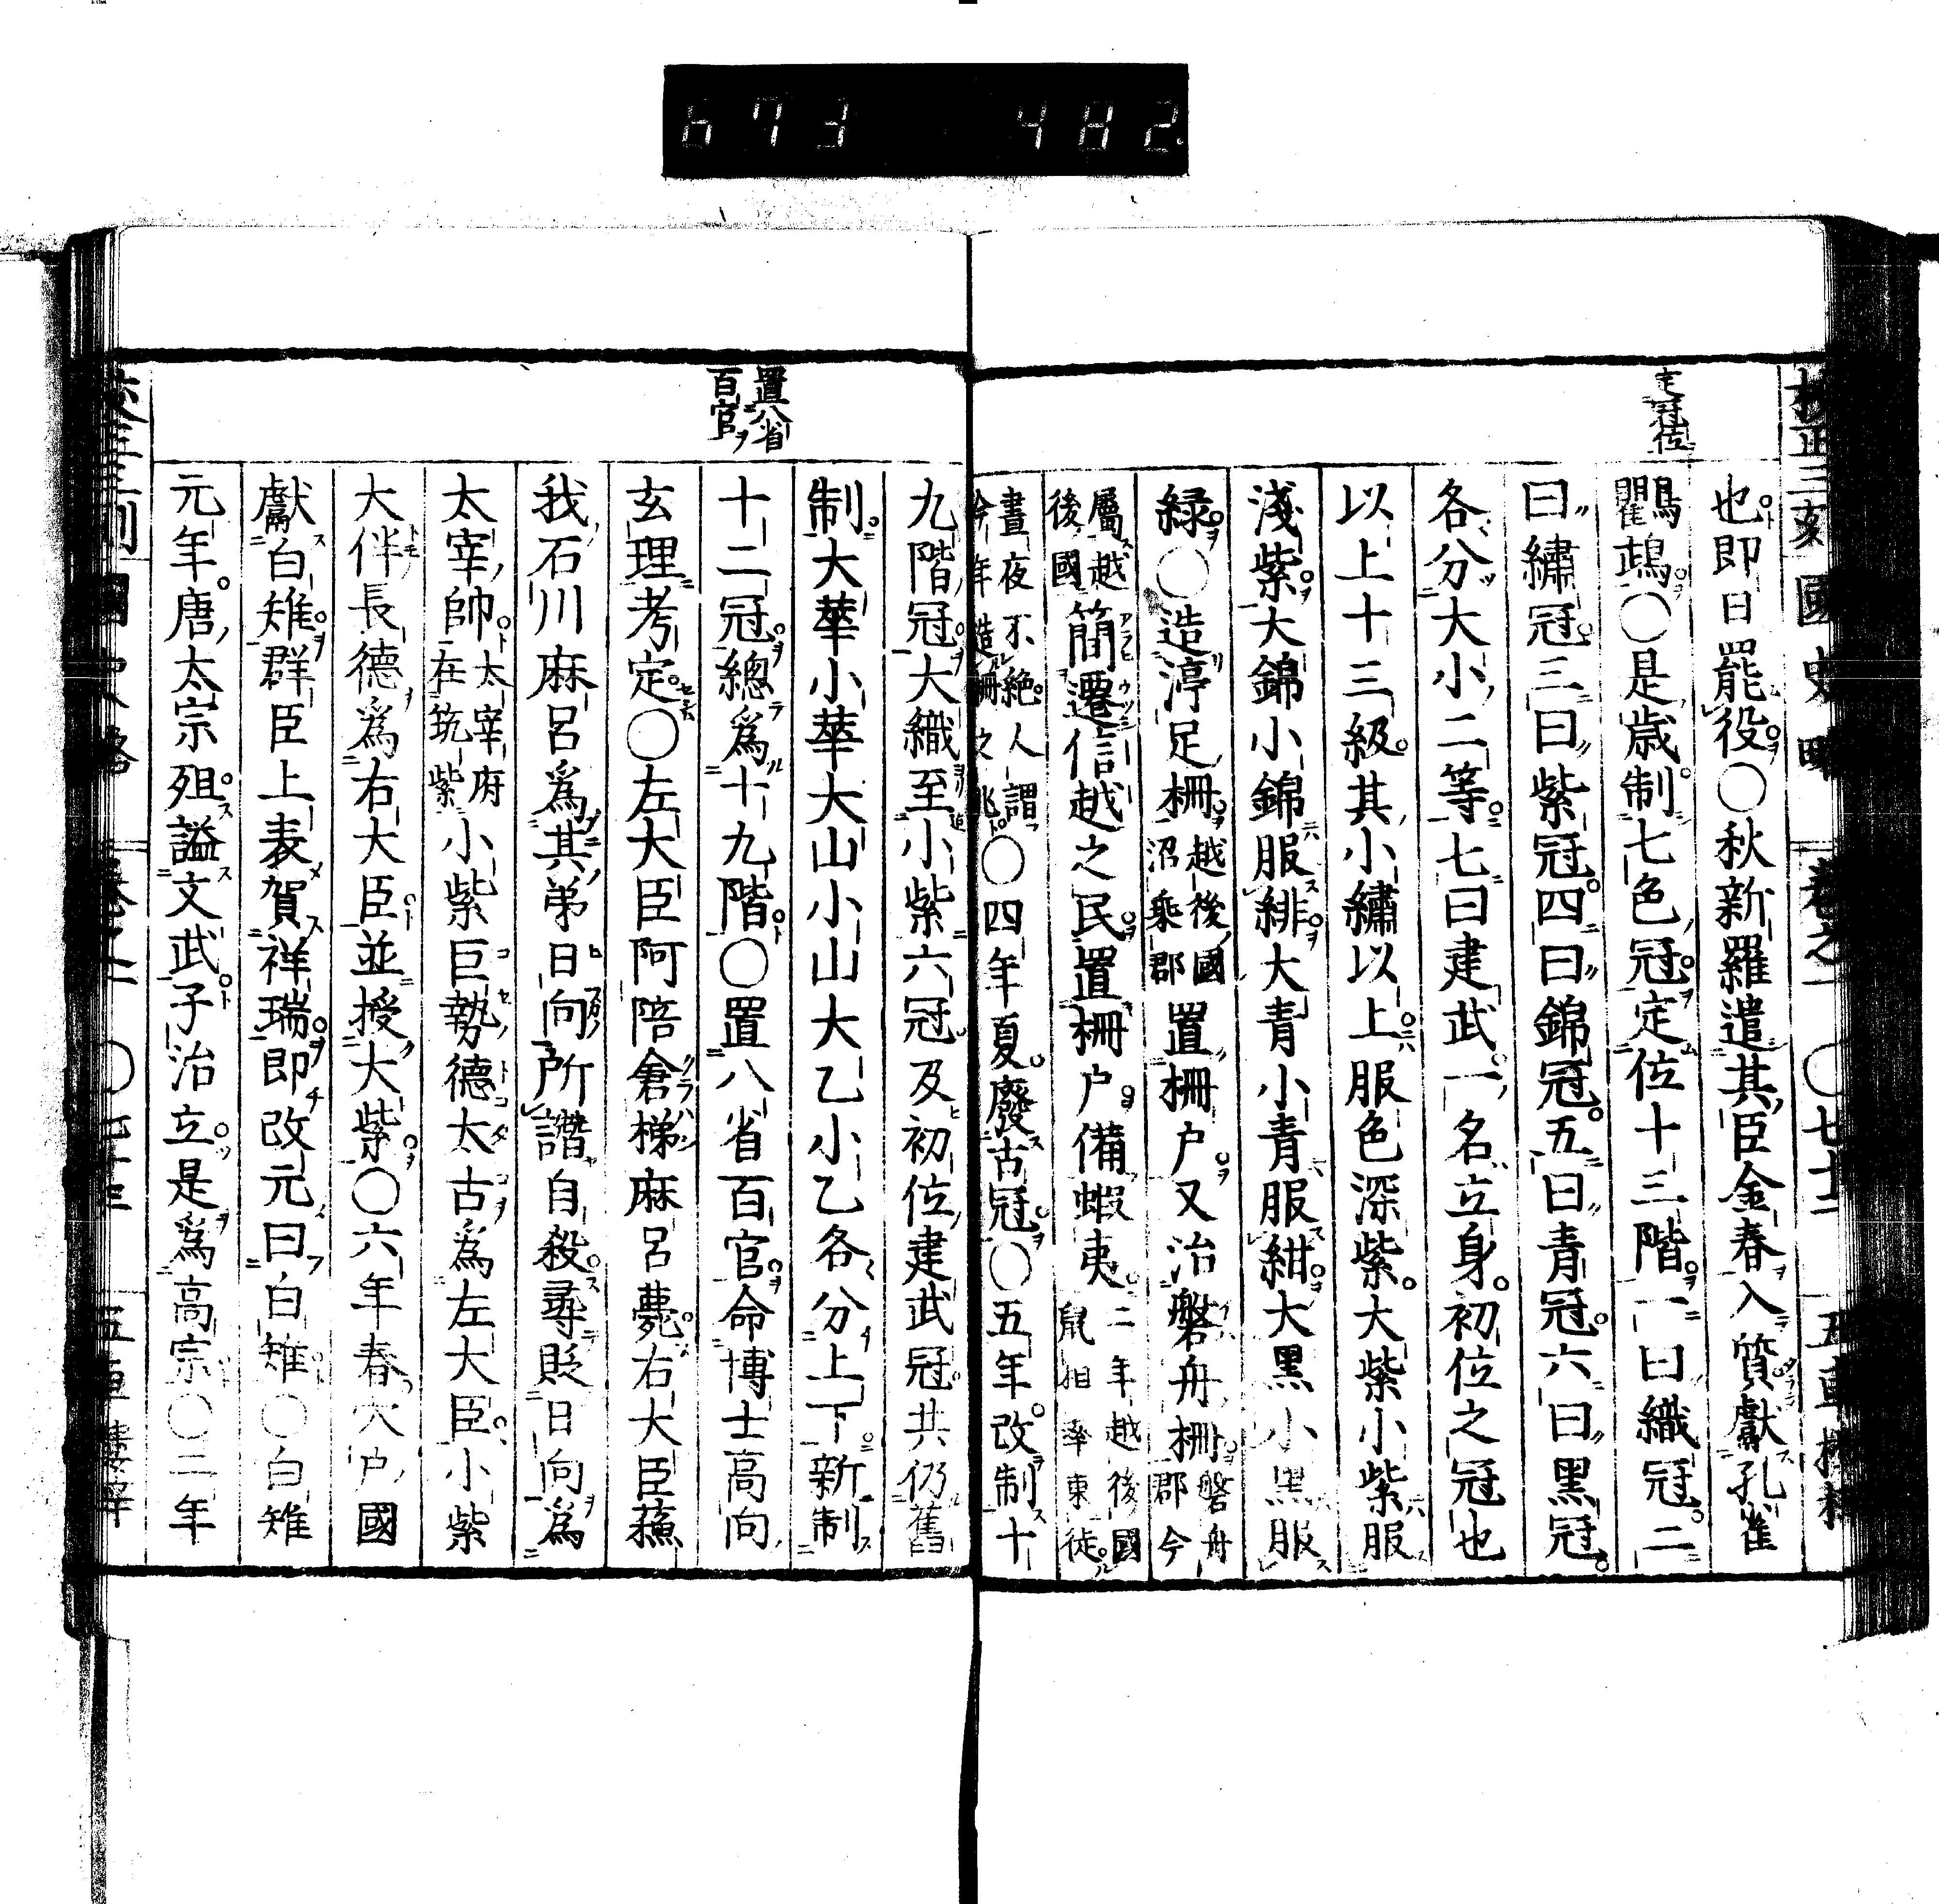 673 482
校正三刻國史略 卷之一 〇七十二 五車樓梓
定冠位
也即日罷役〇秋新羅遣其臣金春入質獻孔雀
鸜鵡〇是歳制七色冠定位十三階一曰織冠二
曰繡冠三曰紫冠四曰錦冠五曰青冠六曰黑冠
各分大小二等七曰建武一名立身初位之冠也
以上十三級其小繡以上服色深紫大紫小紫服
淺紫大錦小錦服緋大青小青服紺大黑小黑服
綠〇造渟足柵越後國沼乘郡置柵戸又治磐舟柵磐舟郡今
屬越後國簡遷信越之民置柵戸備蝦夷二年越後國鼠相率東徙
晝夜不絶人謂今年造柵之兆〇四年夏廢古冠〇五年改制十
置八省百官
九階冠大織至小紫六冠及初位建武冠共仍舊
制大華小華大山小山大乙小乙各分上下新制
十二冠總爲十九階〇置八省百官命博士高向
玄理考定〇左大臣阿陪倉梯麻呂薨右大臣蘇
我石川麻呂爲其弟日向所譖自殺尋貶日向爲
太宰帥太宰府在筑紫小紫巨勢德太古爲左大臣小紫
大伴長德爲右大臣並授大紫〇六年春穴戸國
獻白雉群臣上表賀祥瑞即改元曰白雉〇白雉
元年唐太宗殂謚文武子治立是爲高宗〇二年